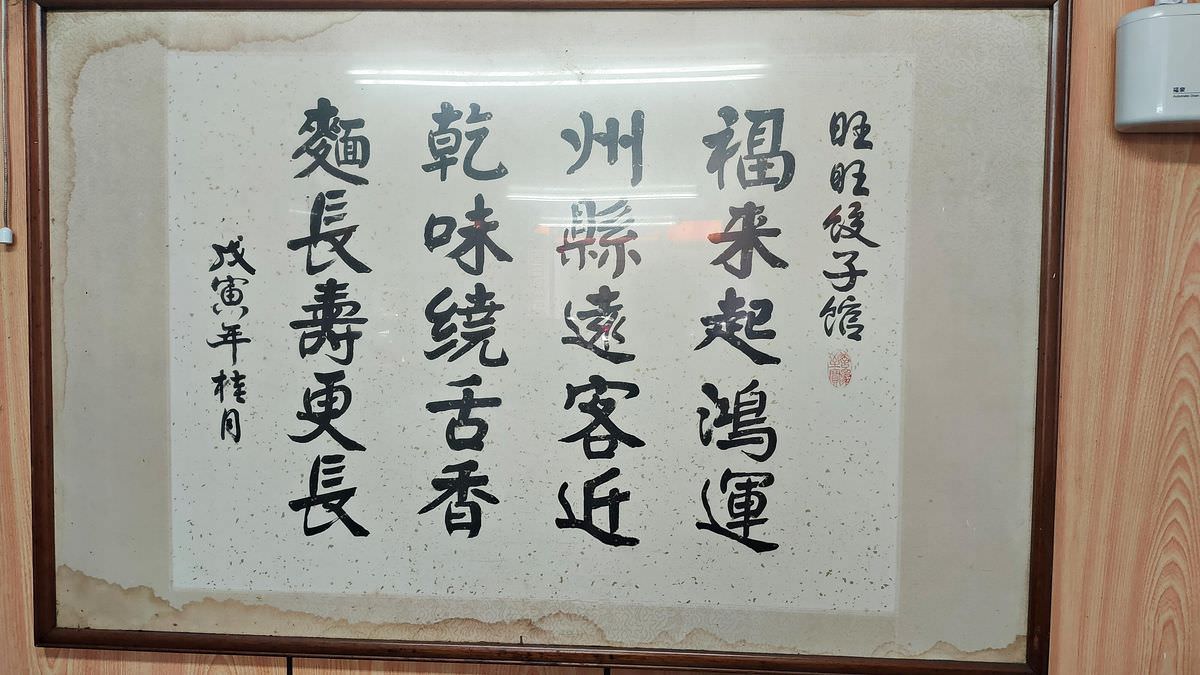 旺旺餃子館
福来起鴻運
州縣遠客近
乾味繞舌香
麵長壽更長
戊寅年桂月
福泉